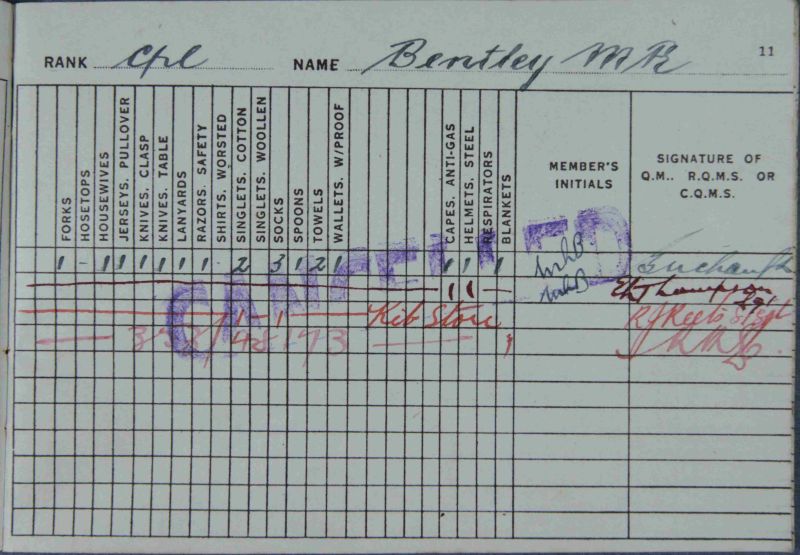 RANK Cpl NAME Bentley M R 11
FORKS
HOSETOPS
HOUSEWIVES
JERSEYS, PULLOVER
KNIVES, CLASP
KNIVES, TABLE
LANYARDS
RAZORS, SAFETY
SHIRTS, WORSTED
SINGLETS, COTTON
SINGLETS, WOOLLEN
SOCKS
SPOONS
TOWELS
WALLETS, W/PROOF
CAPES, ANTI-GAS
HELMETS, STEEL
RESPIRATORS
BLANKETS
MEMBER'S INITIALS
SIGNATURE OF Q.M., R.Q.M.S. OR C.Q.M.S.
1 - 1 1 1 1 1 1 - 2 3 1 2 1 1 1 1 MRB
1 1 MRB Thompson Sgt
1 1 Kit Store S/Sgt
CANCELLED